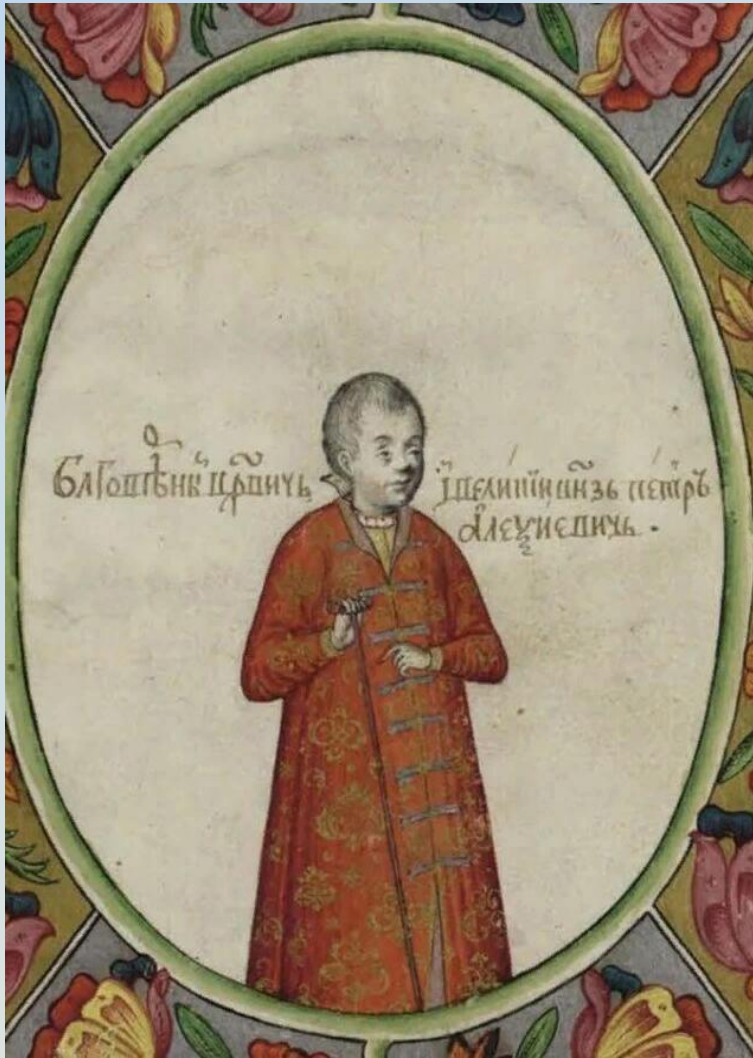 Благовѣⷬ҇ны црⷭ҇вичь, ївеликїи кн҃зь петръ
алеѯиевичь .